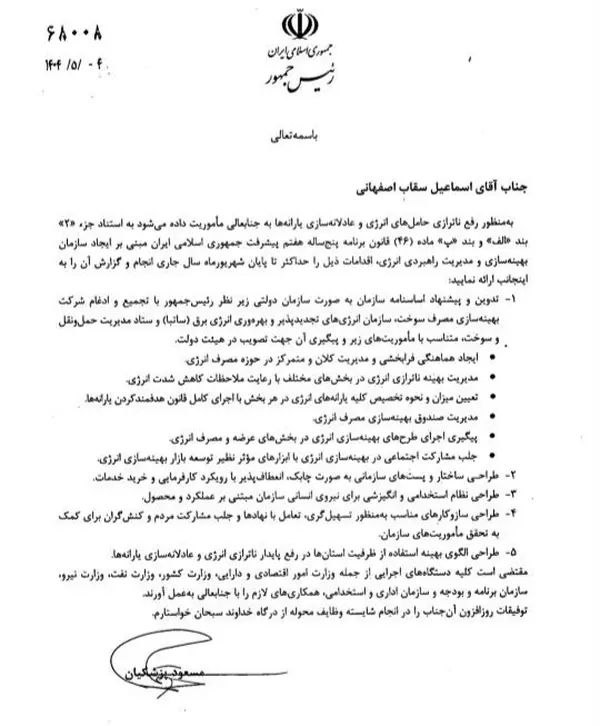 ۶۸۰۰۸
۱۴۰۴ /۵/ - ۴
جمهوری اسلامی ایران
رئیس جمهور
باسمه‌تعالی
جناب آقای اسماعیل سقاب اصفهانی
به‌منظور رفع ناترازی حامل‌های انرژی و عادلانه‌سازی یارانه‌ها به جنابعالی مأموریت داده می‌شود به استناد جزء «۲»
بند «الف» و بند «پ» ماده (۴۶) قانون برنامه پنج‌ساله هفتم پیشرفت جمهوری اسلامی ایران مبنی بر ایجاد سازمان
بهینه‌سازی و مدیریت راهبردی انرژی، اقدامات ذیل را حداکثر تا پایان شهریورماه سال جاری انجام و گزارش آن را به
اینجانب ارائه نمایید:
۱- تدوین و پیشنهاد اساسنامه سازمان به صورت سازمان دولتی زیر نظر رئیس‌جمهور با تجمیع و ادغام شرکت
بهینه‌سازی مصرف سوخت، سازمان انرژی‌های تجدیدپذیر و بهره‌وری انرژی برق (ساتبا) و ستاد مدیریت حمل‌ونقل
و سوخت، متناسب با مأموریت‌های زیر و پیگیری آن جهت تصویب در هیئت دولت.
• ایجاد هماهنگی فرابخشی و مدیریت کلان و متمرکز در حوزه مصرف انرژی.
• مدیریت بهینه ناترازی انرژی در بخش‌های مختلف با رعایت ملاحظات کاهش شدت انرژی.
• تعیین میزان و نحوه تخصیص کلیه یارانه‌های انرژی در هر بخش با اجرای کامل قانون هدفمندکردن یارانه‌ها.
• مدیریت صندوق بهینه‌سازی مصرف انرژی.
• پیگیری اجرای طرح‌های بهینه‌سازی انرژی در بخش‌های عرضه و مصرف انرژی.
• جلب مشارکت اجتماعی در بهینه‌سازی انرژی با ابزارهای مؤثر نظیر توسعه بازار بهینه‌سازی انرژی.
۲- طراحی ساختار و پست‌های سازمانی به صورت چابک، انعطاف‌پذیر با رویکرد کارفرمایی و خرید خدمات.
۳- طراحی نظام استخدامی و انگیزشی برای نیروی انسانی سازمان مبتنی بر عملکرد و محصول.
۴- طراحی سازوکارهای مناسب به‌منظور تسهیل‌گری، تعامل با نهادها و جلب مشارکت مردم و کنش‌گران برای کمک
به تحقق مأموریت‌های سازمان.
۵- طراحی الگوی بهینه استفاده از ظرفیت استان‌ها در رفع پایدار ناترازی انرژی و عادلانه‌سازی یارانه‌ها.
مقتضی است کلیه دستگاه‌های اجرایی از جمله وزارت امور اقتصادی و دارایی، وزارت کشور، وزارت نفت، وزارت نیرو،
سازمان برنامه و بودجه و سازمان اداری و استخدامی، همکاری‌های لازم را با جنابعالی به‌عمل آورند.
توفیقات روزافزون آن‌جناب را در انجام شایسته وظایف محوله از درگاه خداوند سبحان خواستارم.
مسعود پزشکیان